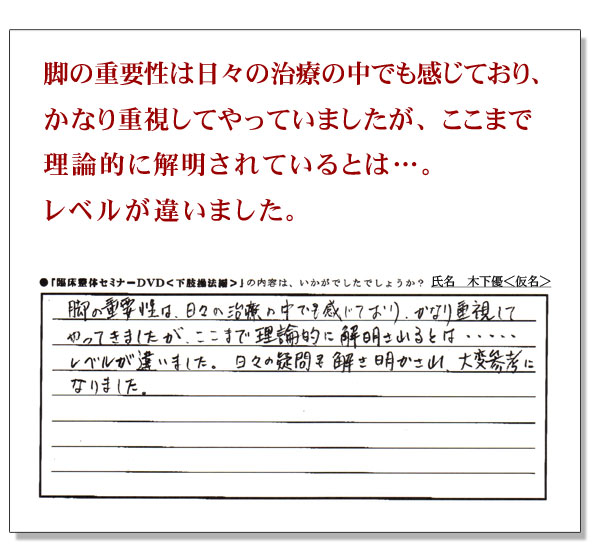 脚の重要性は日々の治療の中でも感じており、
かなり重視してやっていましたが、ここまで
理論的に解明されているとは…。
レベルが違いました。
●『臨床整体セミナーDVD<下肢操法編>』の内容は、いかがでしたでしょうか？ 氏名 木下優<仮名>
脚の重要性は、日々の治療の中でも感じており、かなり重視して
やってきましたが、ここまで理論的に解明されるとは・・・・・
レベルが違いました。日々の疑問も解き明かされ、大変参考に
なりました。